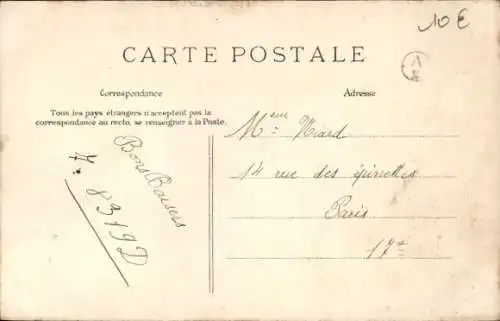 10 €
CARTE POSTALE
Correspondance
Adresse
Tous les pays étrangers n'acceptent pas la
correspondance au recto, se renseigner à la Poste.
Bons Baisers
8319D
Mᵉᵘʳ Niard
14 rue des épinettes
Paris
17ᵉ